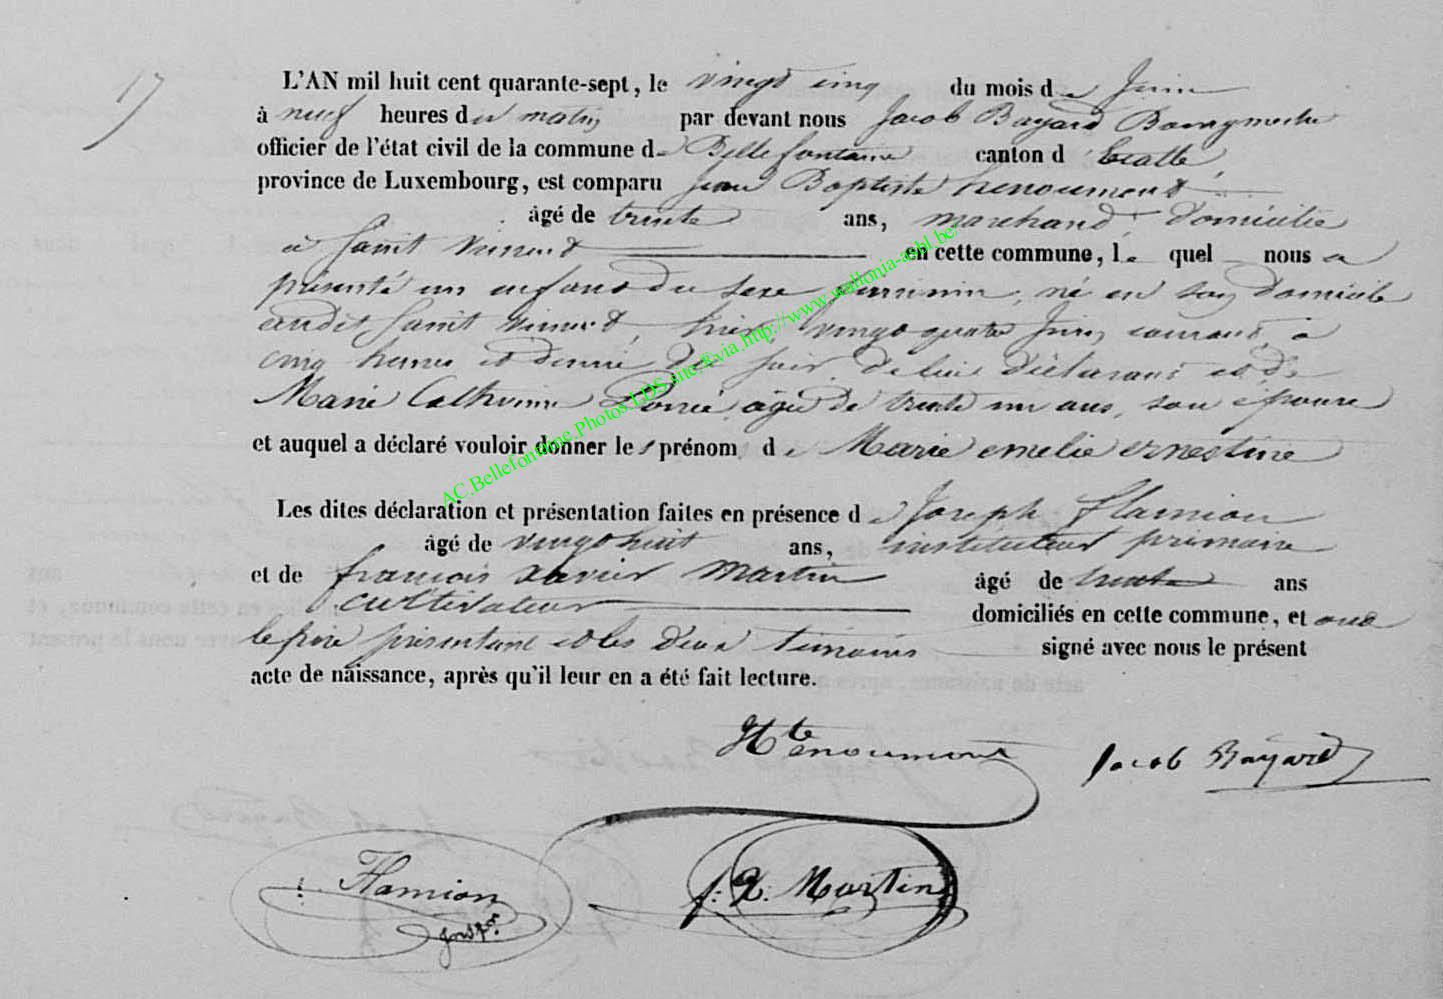 17
L'AN mil huit cent quarante-sept, le vingt cinq du mois de Juin
à neuf heures du matin par devant nous Jacob Bayard Bourgmestre
officier de l'état civil de la commune de Bellefontaine canton d'Etalle
province de Luxembourg, est comparu Jean Baptiste henoumont
âgé de trente ans, marchand, domicilié
à Saint Vincent en cette commune, lequel nous a
présenté un enfant du sexe féminin, né en son domicile
audit Saint Vincent hier vingt quatre Juin courant, à
cinq heures et demie du soir, de lui déclarant et de
Marie Catherine âgée de trente un ans, son épouse
et auquel a déclaré vouloir donner les prénom de Marie emelie ernestine
Les dites déclaration et présentation faites en présence de Joseph flamion
âgé de vingt huit ans, instituteur primaire
et de françois xavier Martin âgé de trente ans
cultivateur domiciliés en cette commune, et ont
le père présentant et les deux témoins signé avec nous le présent
acte de naissance, après qu'il leur en a été fait lecture.
Henoumont Jacob Bayard
Flamion f: X. Martin
AC.Bellefontaine.Photos.LDS.site.&via.http://www.wallonia-asbl.be/